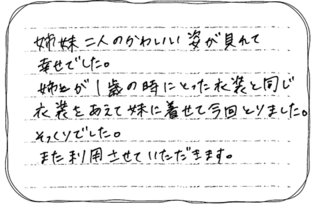 姉妹二人のかわいい姿が見れて
幸せでした。
姉とが1歳の時にとった衣装と同じ
衣装をあえて妹に着せて今回とりました。
そっくりでした。
また利用させていただきます。